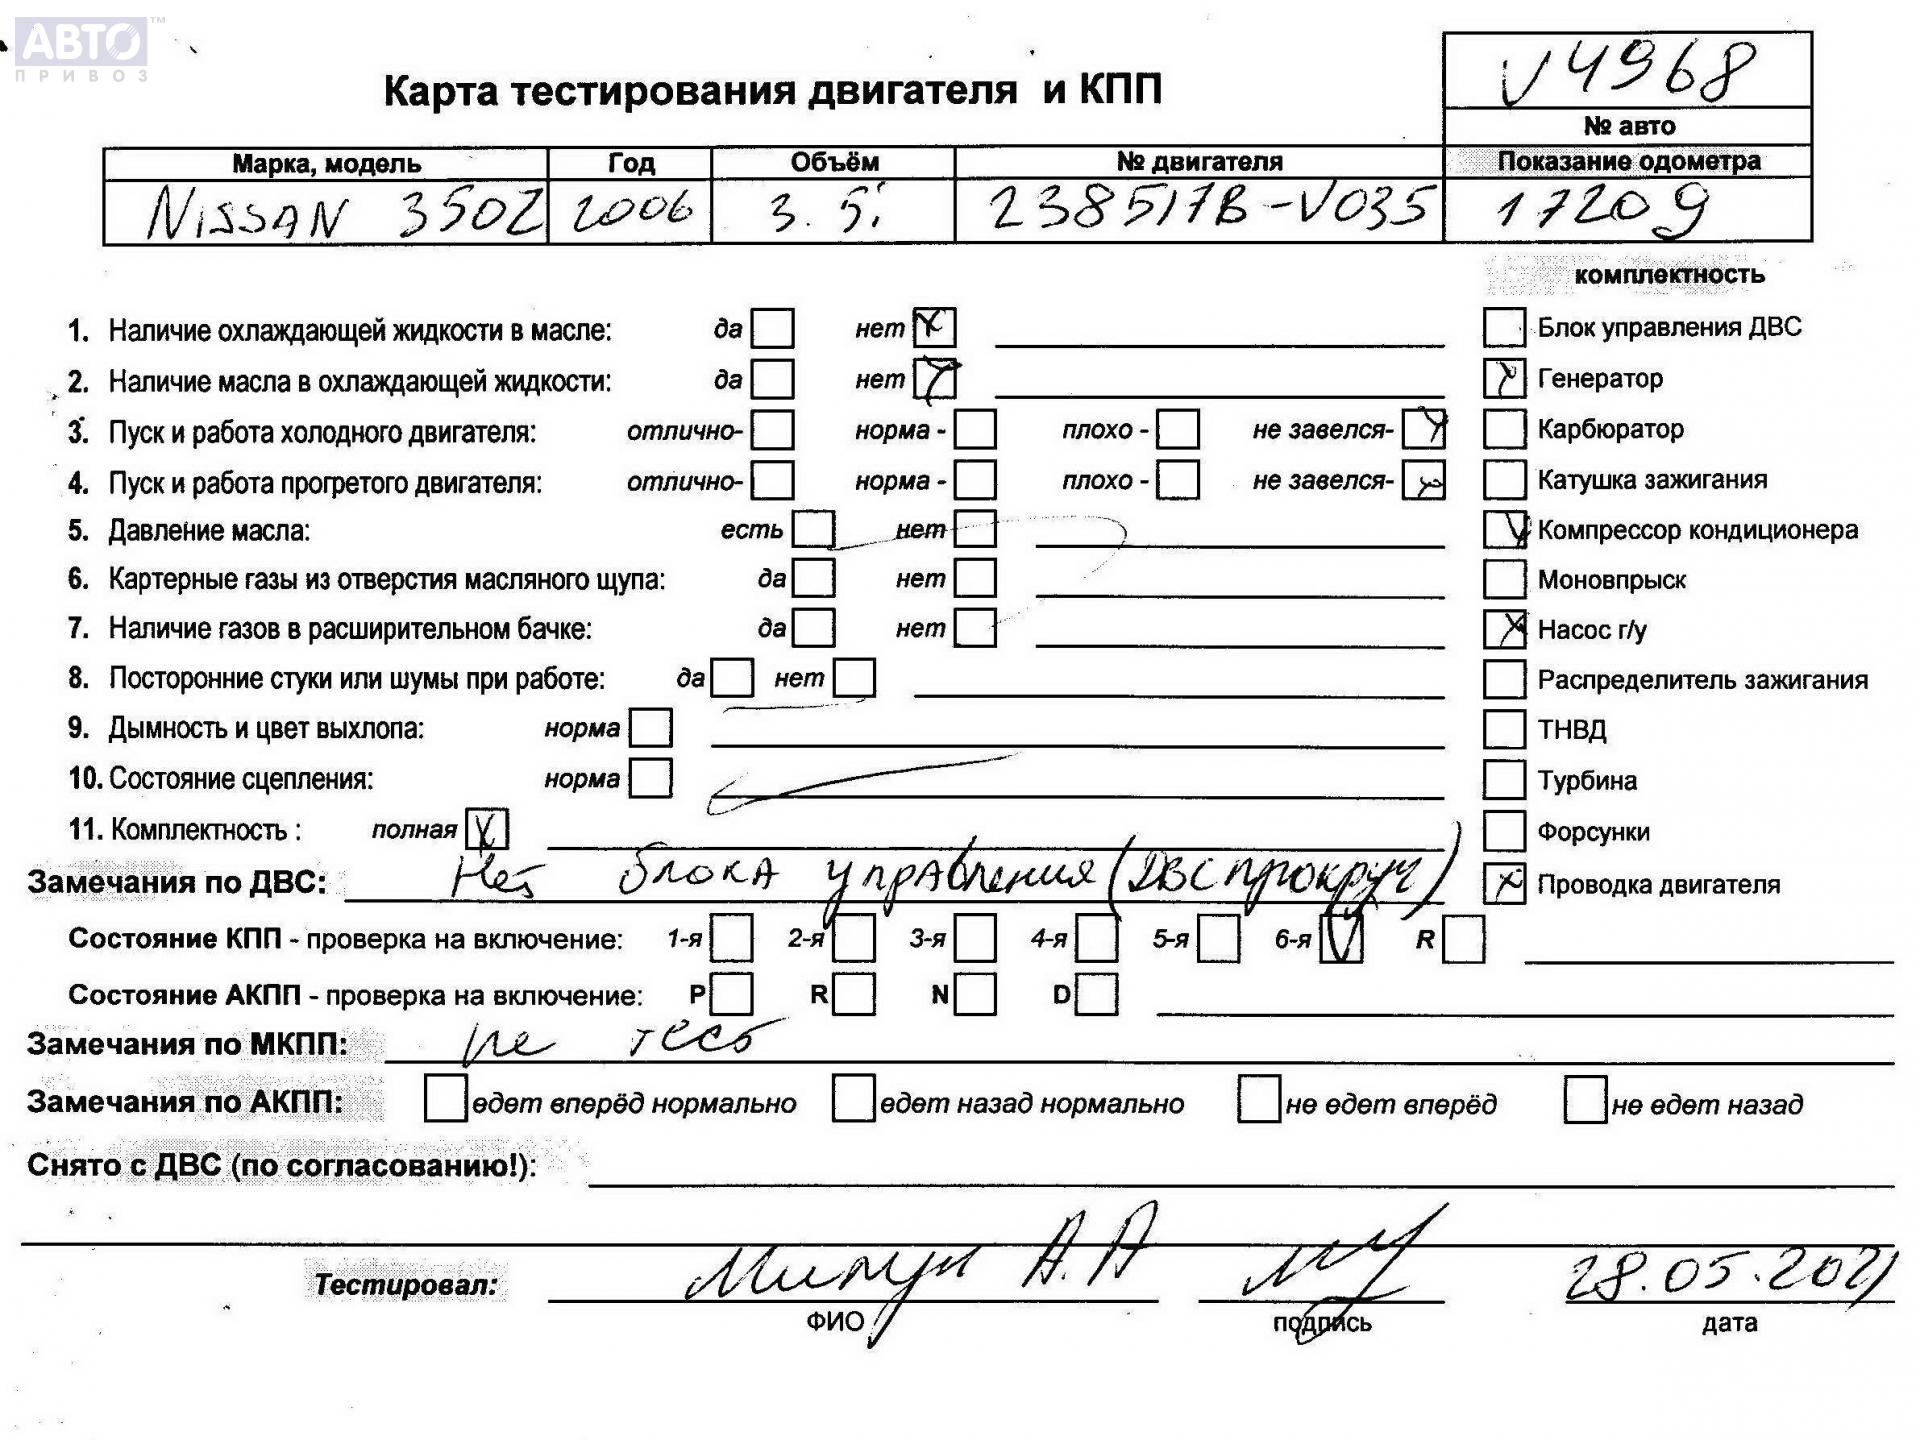 АВТО™
ПРИВОЗ
V4968
Карта тестирования двигателя и КПП
№ авто
Марка, модель Год Объём № двигателя Показание одометра
NISSAN 350Z 2006 3.5i 238517B-V035 17209
комплектность
1. Наличие охлаждающей жидкости в масле: да нет Блок управления ДВС
2. Наличие масла в охлаждающей жидкости: да нет Генератор
3. Пуск и работа холодного двигателя: отлично- норма - плохо - не завелся- Карбюратор
4. Пуск и работа прогретого двигателя: отлично- норма - плохо - не завелся- Катушка зажигания
5. Давление масла: есть нет Компрессор кондиционера
6. Картерные газы из отверстия масляного щупа: да нет Моновпрыск
7. Наличие газов в расширительном бачке: да нет Насос г/у
8. Посторонние стуки или шумы при работе: да нет Распределитель зажигания
9. Дымность и цвет выхлопа: норма ТНВД
10. Состояние сцепления: норма Турбина
11. Комплектность : полная Форсунки
Замечания по ДВС: Нет блока управления (ДВС прокруч) Проводка двигателя
Состояние КПП - проверка на включение: 1-я 2-я 3-я 4-я 5-я 6-я R
Состояние АКПП - проверка на включение: P R N D
Замечания по МКПП: не тест
Замечания по АКПП: едет вперёд нормально едет назад нормально не едет вперёд не едет назад
Снято с ДВС (по согласованию!):
Тестировал: А.А 28.05.2021
ФИО подпись дата